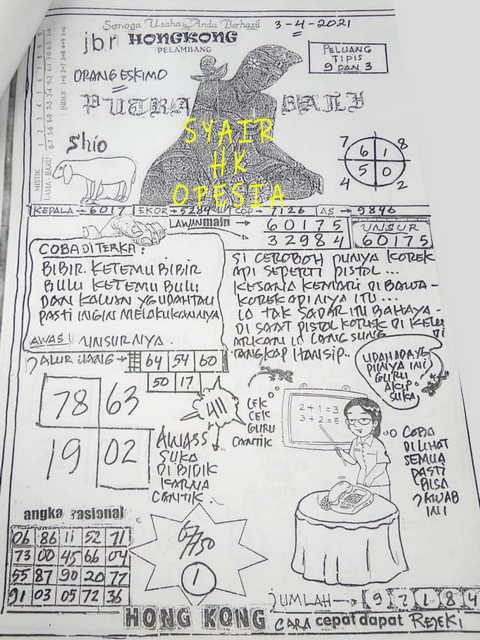 Semoga Usaha Anda Berhasil
3-4-2021
jbr HONGKONG
PELAMBANG
PELUANG
TIPIS
9 DAN 3
ORANG ESKIMO
PUTRA BALI
SYAIR
HK
OPESIA
Shio
7 8
6 1
5 0
4 2
KEPALA → 6017 EKOR → 5284 COP → 7126 AS → 9846
LAWAN main → 60175
→ 32984
UNSUR
60175
COBA DI TERKA :
BIBIR KETEMU BIBIR
BULU KETEMU BULU
DAN KALIAN YG UDAH TAU
PASTI INGIN MELAKUKANNYA
AWAS! UNSURNYA.
SI CEROBOH PUNYA KOREK
API SEPERTI PISTOL...
KESANA KEMARI DI BAWA-
KOREK APINYA ITU...
IA TAK SADAR INI BAHAYA-
DI SAAT PISTOL KOREK DI KELU
ARKAN IA LANGSUNG DI
TANGKAP HANSIP..
JALUR UANG → 64 54 60
50 17
UDAH ADA YG
PUNYA INI
GURU
AKIP
SUKA
78 63
19 02
CEK
CEK
GURU
CANTIK
2+1=3
3+2=5
AWASS
SUKA
DI BIDIK
KARNA
CANTIK
COBA
DI LIHAT
SEMUA
PASTI
BISA
JAWAB
INI
angka rasional
06 86 11 52 71
73 00 45 66 04
55 87 90 20 77
91 03 05 72 36
67/150
1
JUMLAH → 9 7 1 8 4
HONG KONG CARA cepat dapat REJEKI